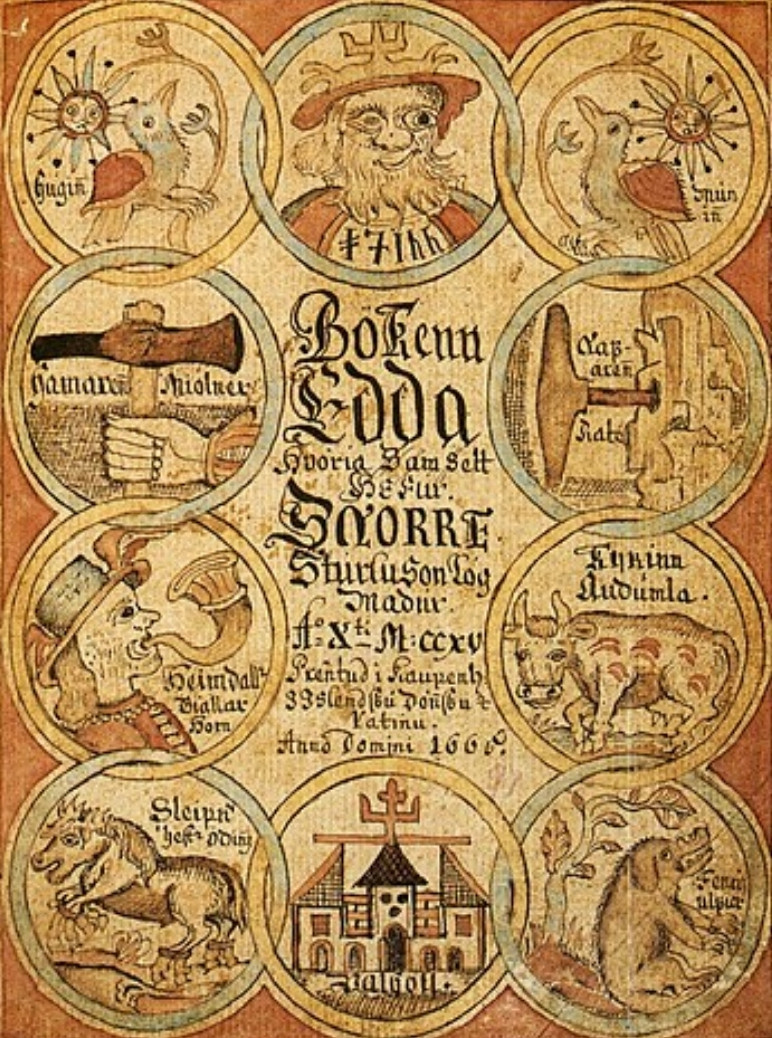 Hugin
Mun
in
Hamaren Miolner
Nafar
aren
Rate
Bökenn
Edda
Hvoria Sam Sett
Hefur
SNORRE
Sturluson Log
Madur
Ao X ti M:CCXV
Prentud i Kaupenh
Vatinu.
Anno Domini 166
Heimdall
Giallar
Horn
Kyrinn
Audumla.
Sleipn
hestr Odins
Valhöll.
Fenris
ulfur